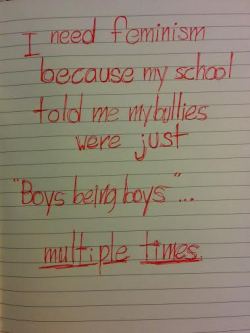 I need feminism
because my school
told me my bullies
were just
"Boys being boys"...
multiple times.